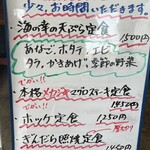 少々、お時間、いただきます。
・海の幸の天ぷら定食
1500円
あなご、ホタテ、エビ
タラ、かきあげ、季節の野菜
でかい!!
・本格メカジキマグロステーキ定食
1950円
でかい!!
・ホッケ定食
1250円
・ぎんだら照焼定食
1450円